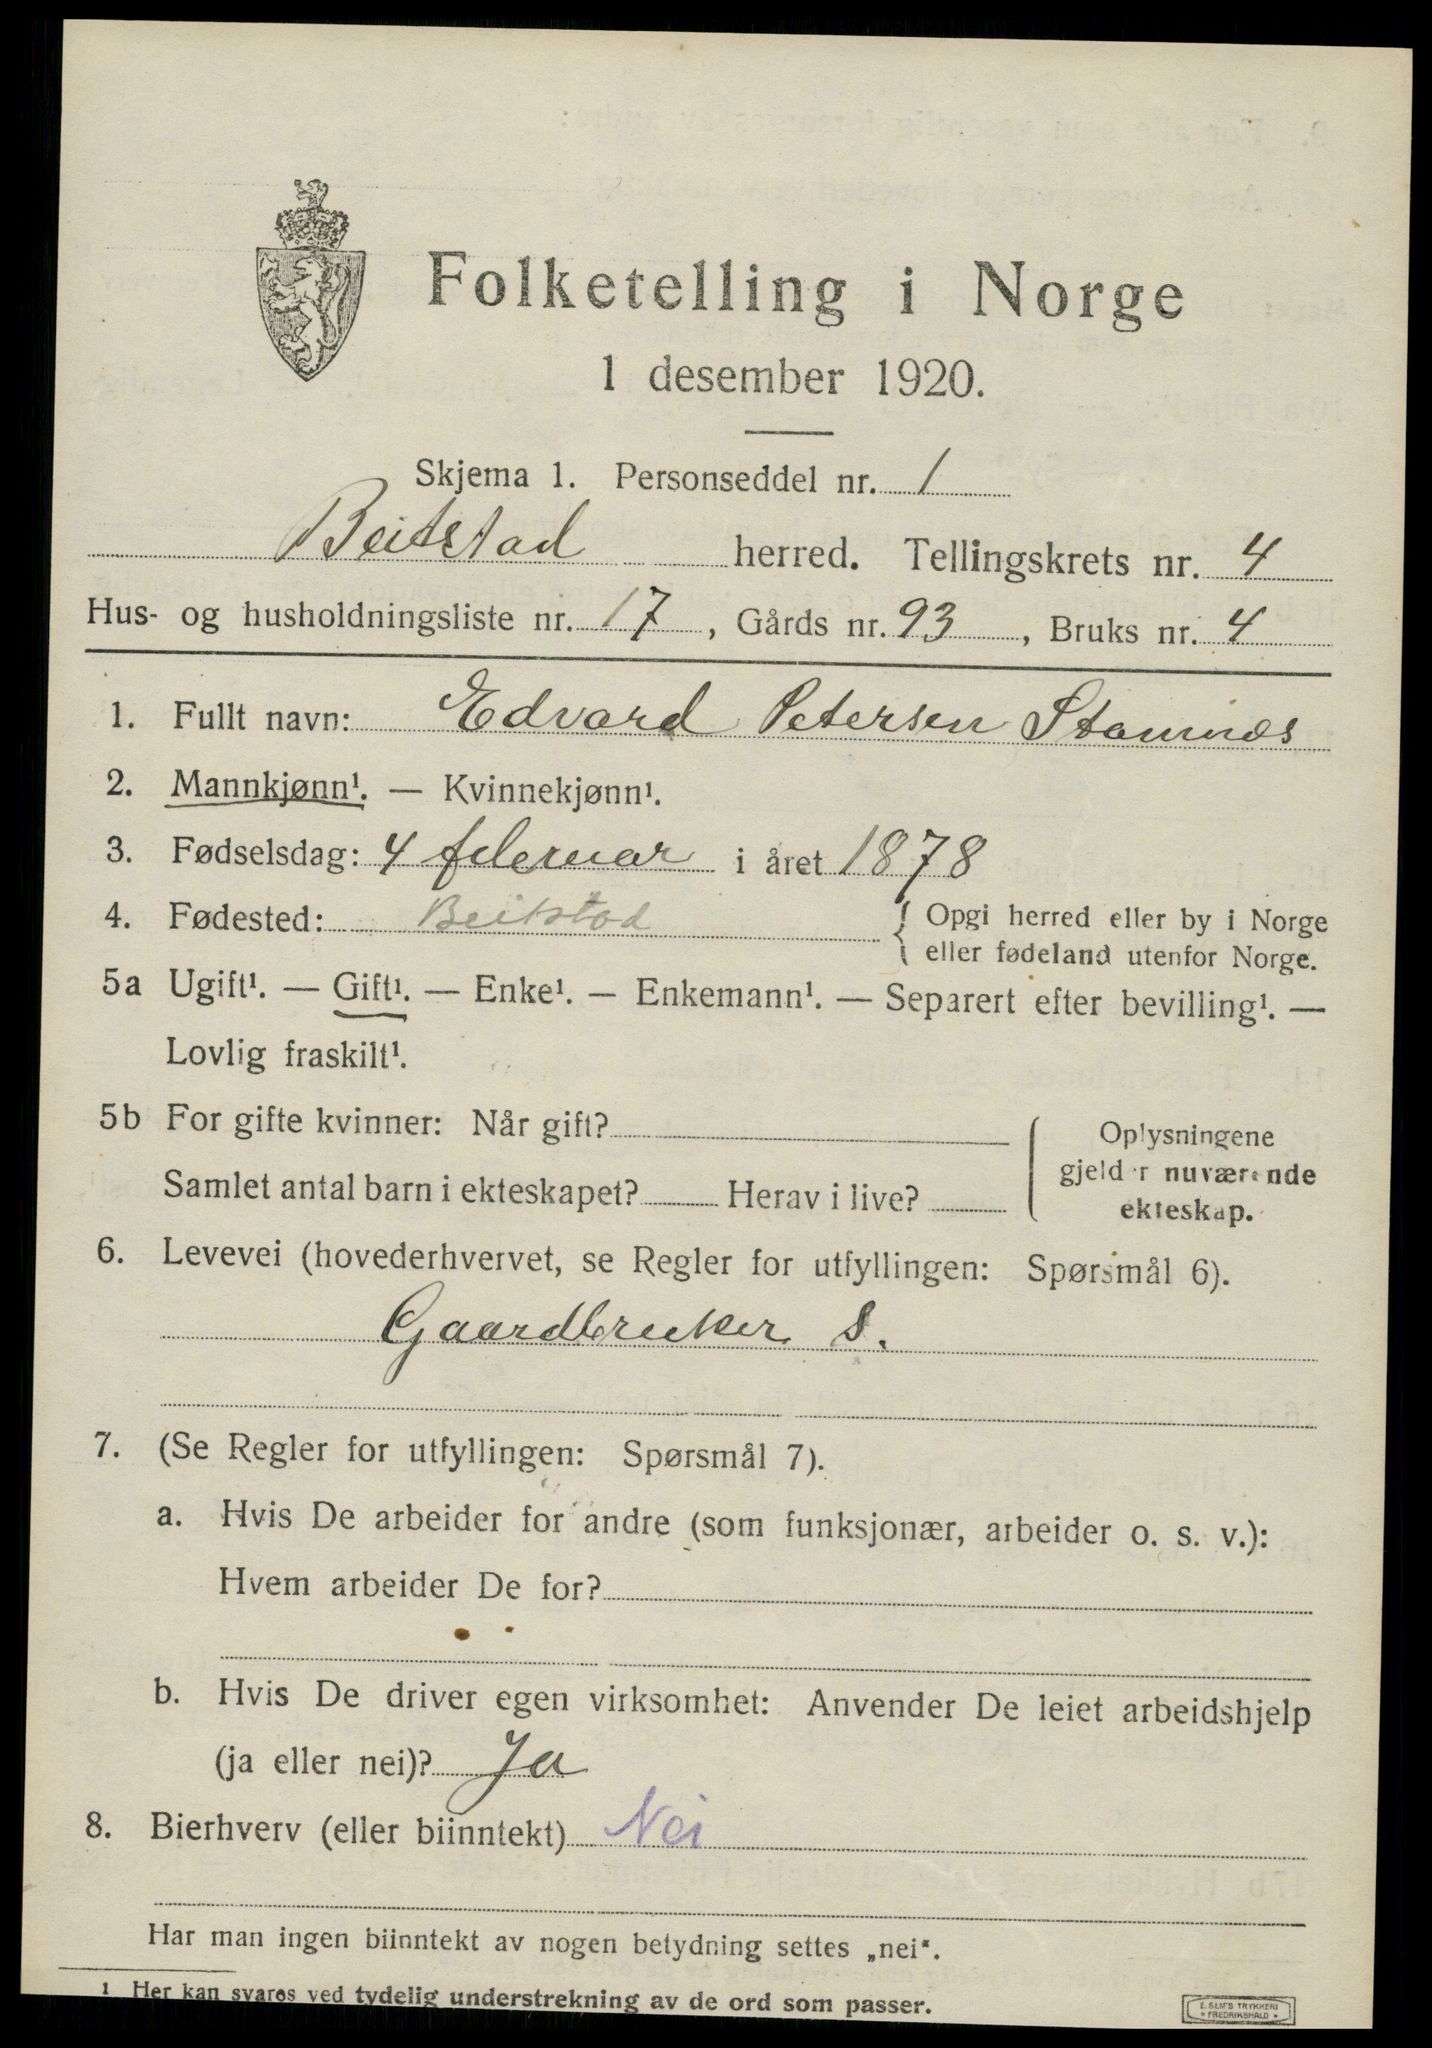 Folketelling i Norge
1 desember 1920.
Skjema 1. Personseddel nr. 1
Beitstad herred. Tellingskrets nr. 4
Hus- og husholdningsliste nr. 17, Gårds nr. 93, Bruks nr. 4
1. Fullt navn: Edvard Petersen
2. Mannkjønn¹. — Kvinnekjønn¹.
3. Fødselsdag: 4 februar i året 1878
4. Fødested: Beitstad { Opgi herred eller by i Norge
eller fødeland utenfor Norge.
5a Ugift¹. — Gift¹. — Enke¹. — Enkemann¹. — Separert efter bevilling¹. —
Lovlig fraskilt¹.
5b For gifte kvinner: Når gift?
Samlet antal barn i ekteskapet? Herav i live?
Oplysningene
gjelder nuværende
ekteskap.
6. Levevei (hovederhvervet, se Regler for utfyllingen: Spørsmål 6).
Gaardbruker S.
7. (Se Regler for utfyllingen: Spørsmål 7).
a. Hvis De arbeider for andre (som funksjonær, arbeider o. s. v.):
Hvem arbeider De for?
b. Hvis De driver egen virksomhet: Anvender De leiet arbeidshjelp
(ja eller nei)? Ja
8. Bierhverv (eller biinntekt) Nei
Har man ingen biinntekt av nogen betydning settes „nei“.
1 Her kan svares ved tydelig understrekning av de ord som passer.
E. SEM'S TRYKKERI
* FREDRIKSHALD *